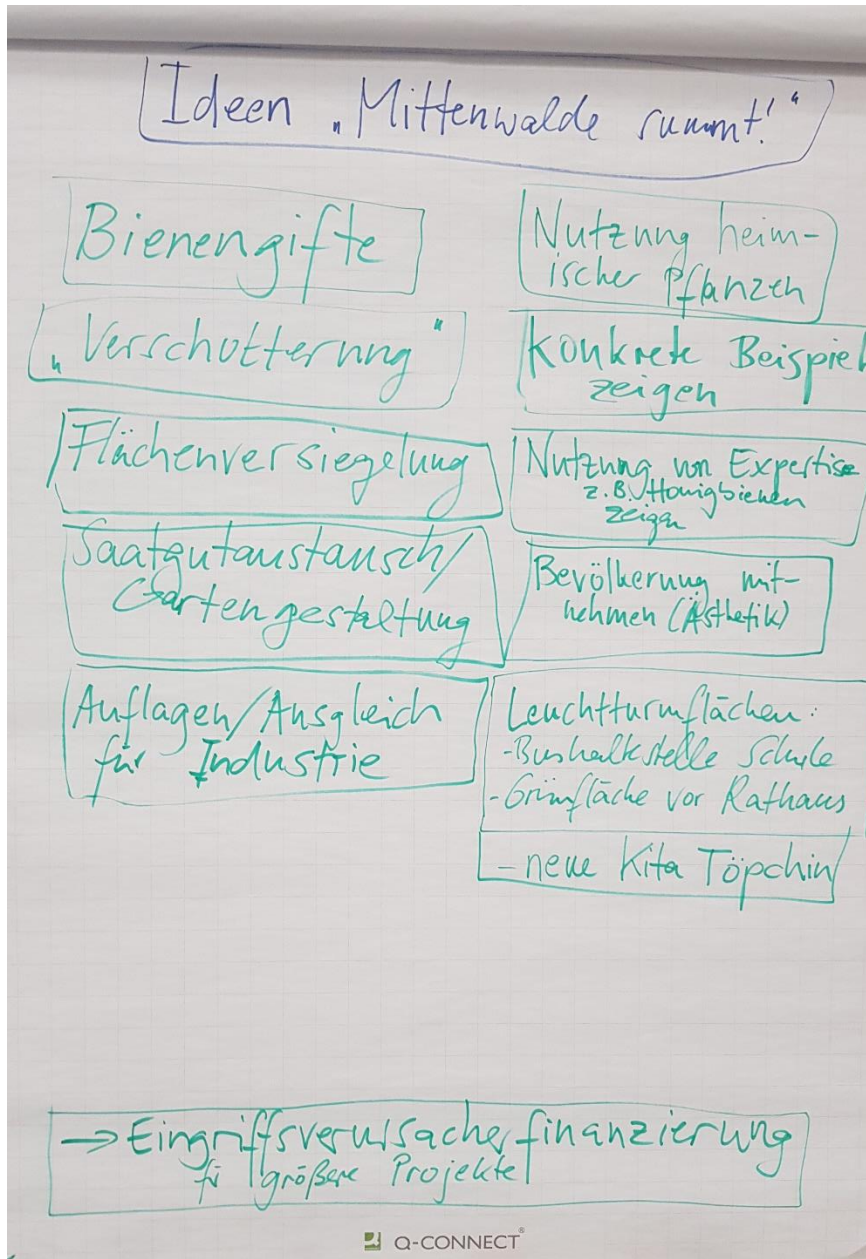 Ideen „Mittenwalde summt!“
Bienengifte
„Verschotterung“
Flächenversiegelung
Saatgutaustausch/
Gartengestaltung
Auflagen/Ausgleich
für Industrie
Nutzung heim-
ischer Pflanzen
Konkrete Beispiel
zeigen
Nutzung von Expertise
z.B. Honigbienen
zeigen
Bevölkerung mit-
nehmen (Ästhetik)
Leuchtturmflächen:
-Bushaltestelle Schule
-Grünfläche vor Rathaus
-neue Kita Töpchin
→ Eingriffsverursacherfinanzierung
für größere Projekte
Q-CONNECT®